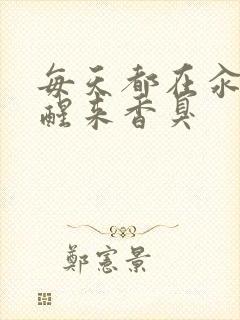 每天都在氽
醒来香臭
鄭憲景